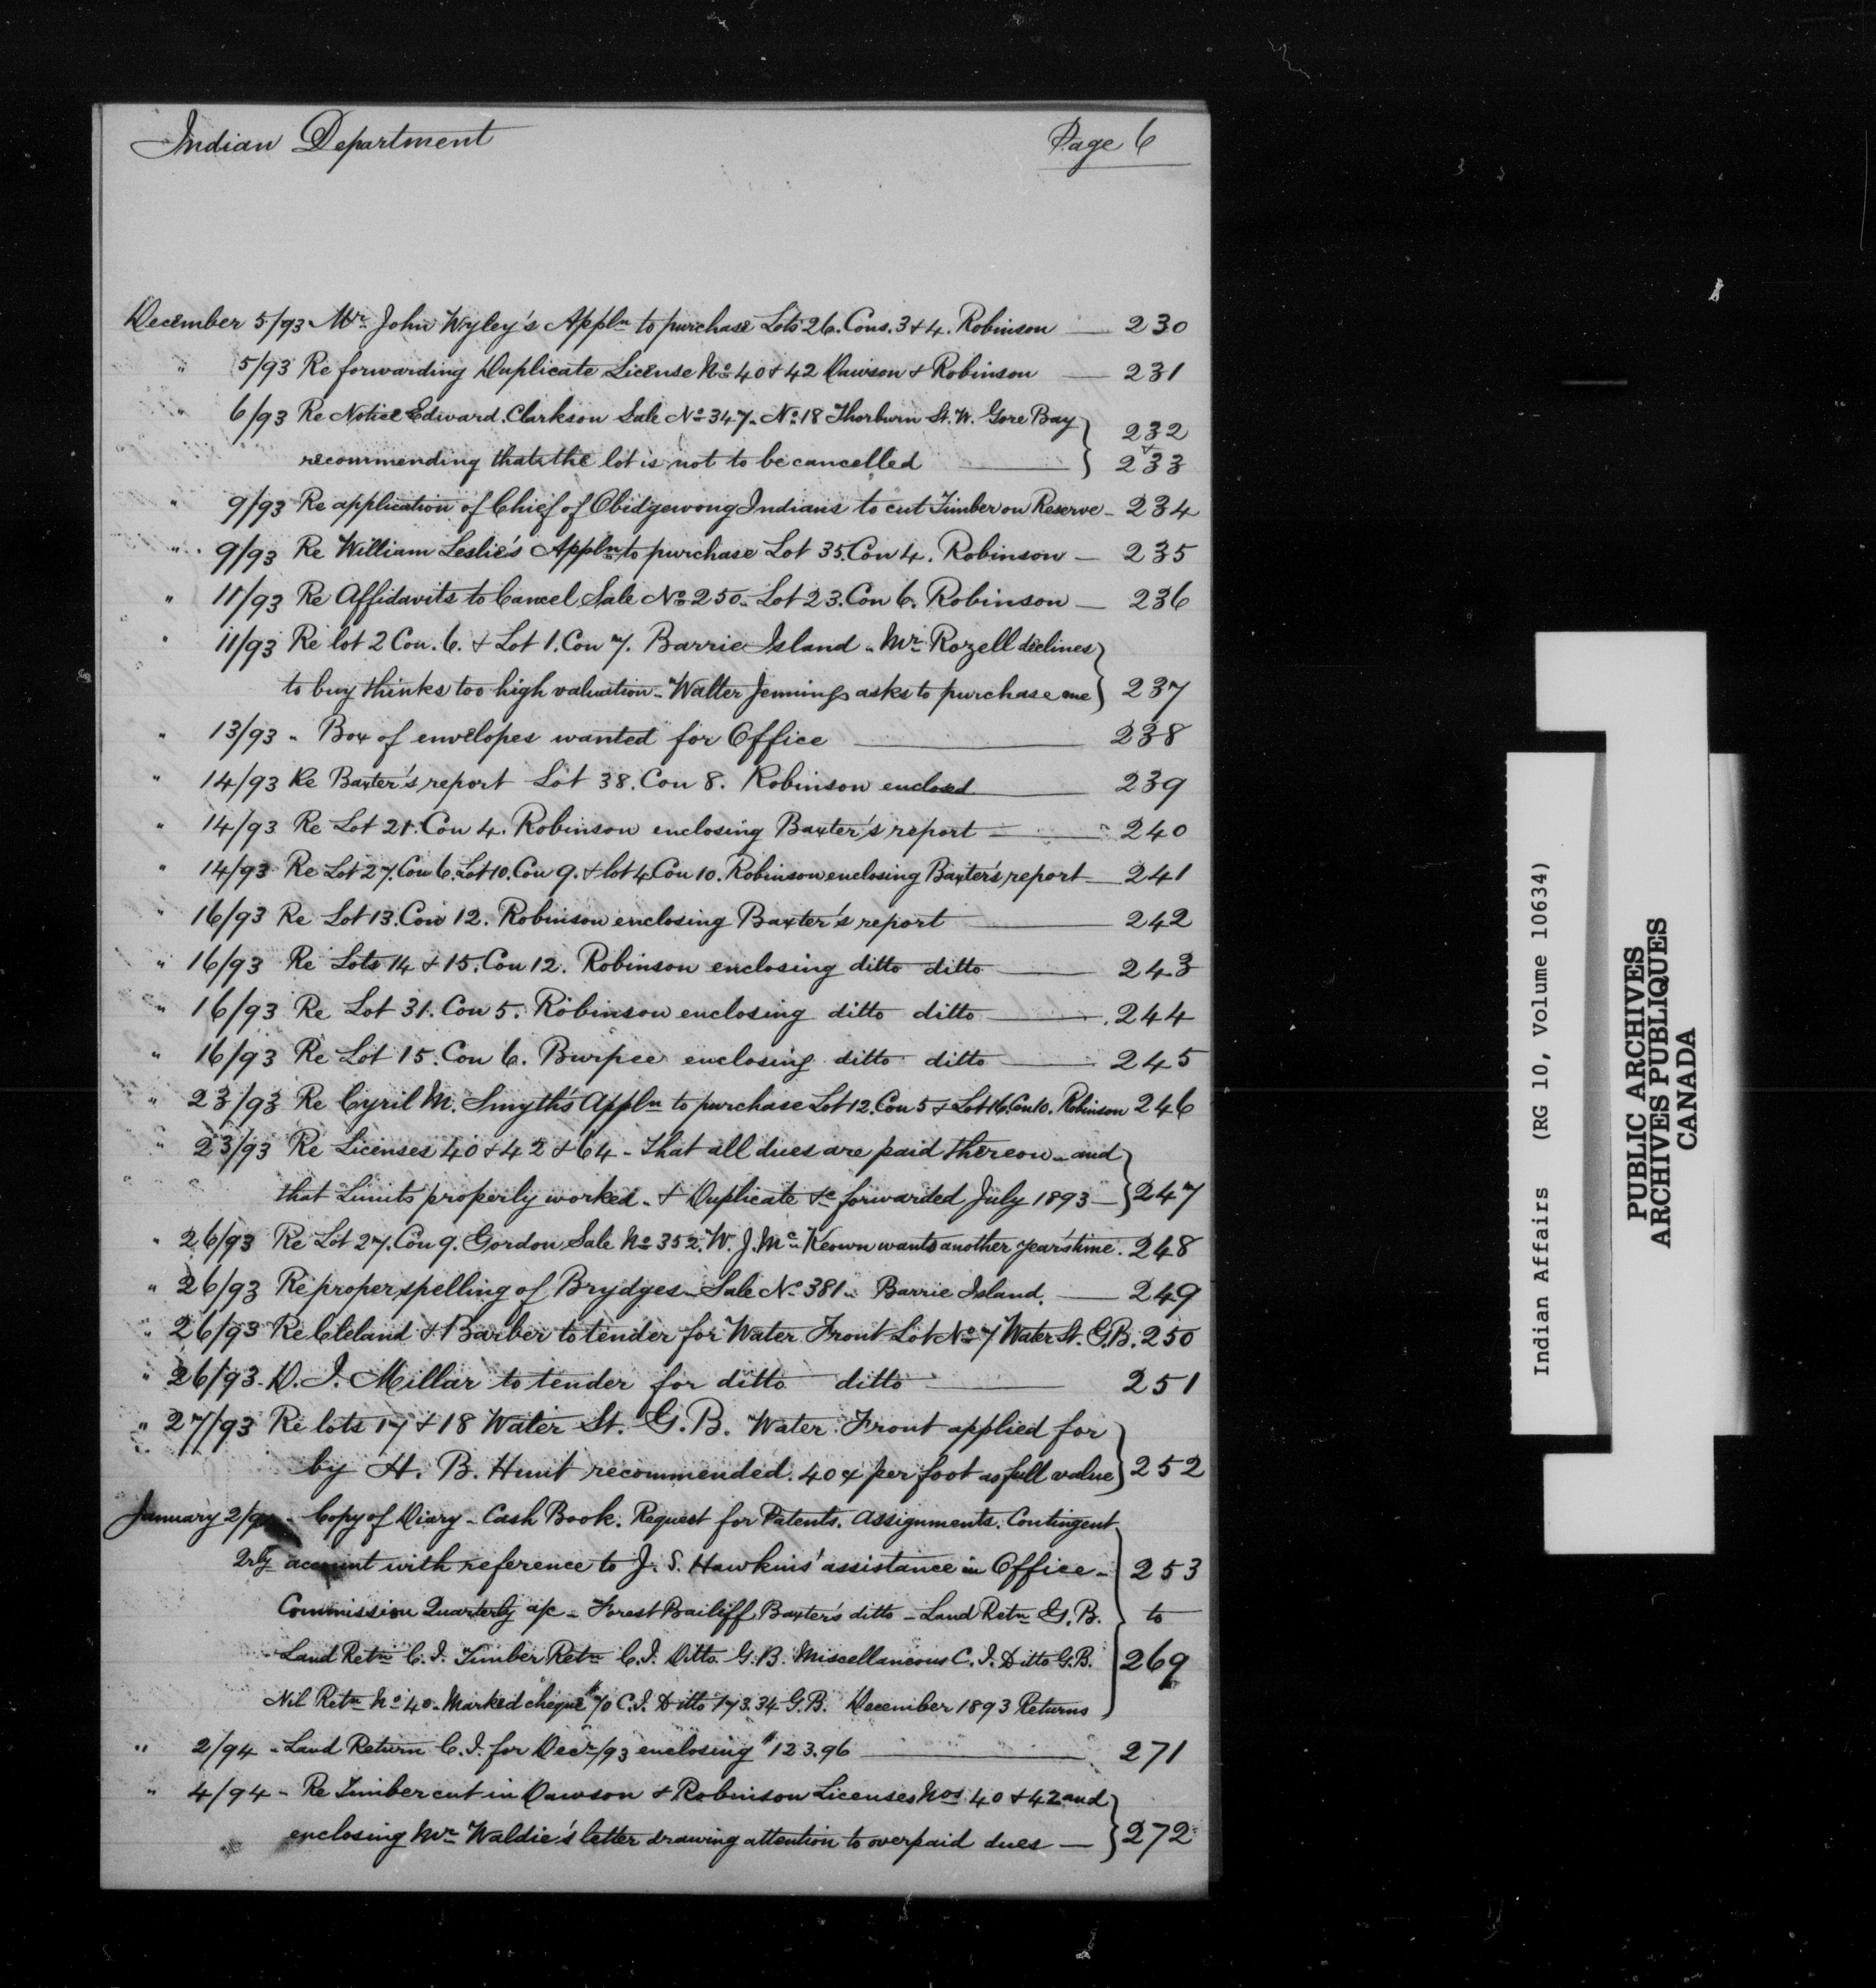 Indian Department Page 6
December 5/93 Mr. John Wyley's Appln to purchase Lots 26. Cons. 3 & 4. Robinson — 230
" 5/93 Re forwarding Duplicate License No 40 & 42 Dawson & Robinson — 231
" 6/93 Re Notice Edward Clarkson Sale No 347. No 18 Thorburn St. W. Gore Bay 232
recommending that the lot is not to be cancelled — & 233
" 9/93 Re application of Chief of Obidgewong Indians to cut Timber on Reserve - 234
" 9/93 Re William Leslie's Appln to purchase Lot 35. Con 4. Robinson — 235
" 11/93 Re Affidavits to Cancel Sale No 250. Lot 23. Con 6. Robinson — 236
" 11/93 Re lot 2 Con. 6. & Lot 1. Con 7. Barrie Island. Mr Rozell declines
to buy thinks too high valuation - Walter Jennings asks to purchase one 237
" 13/93 - Box of envelopes wanted for Office — 238
" 14/93 Re Baxter's report Lot 38. Con 8. Robinson enclosed — 239
" 14/93 Re Lot 21. Con 4. Robinson enclosing Baxter's report — 240
" 14/93 Re Lot 27. Con 6. Lot 10. Con 9. & lot 4 Con 10. Robinson enclosing Baxter's report — 241
" 16/93 Re Lot 13. Con 12. Robinson enclosing Baxter's report — 242
" 16/93 Re Lots 14 & 15. Con 12. Robinson enclosing ditto ditto — 243
" 16/93 Re Lot 31. Con 5. Robinson enclosing ditto ditto — 244
" 16/93 Re Lot 15. Con 6. Burpee enclosing ditto ditto — 245
" 23/93 Re Cyril M. Smyth's Appln to purchase Lot 12. Con 5 & Lot 16. Con 10. Robinson 246
" 23/93 Re Licenses 40 & 42 & 64 - that all dues are paid thereon - and
that Limits properly worked - & Duplicate &c forwarded July 1893 — 247
" 26/93 Re Lot 27. Con 9. Gordon Sale No 352. W. J. McKeown wants another year's time. 248
" 26/93 Re proper spelling of Brydges - Sale No 381 - Barrie Island. — 249
" 26/93 Re Cleland & Barber to tender for Water Front Lot No 7 Water St. G.B. 250
" 26/93 - D. I. Millar to tender for ditto ditto — 251
" 27/93 Re lots 17 & 18 Water St. G. B. Water Front applied for
by H. B. Hunt recommended. 40¢ per foot as full value 252
January 2/94 - Copy of Diary - Cash Book. Request for Patents. Assignments. Contingent
Qrly account with reference to J. S. Hawkins' assistance in Office - 253
Commission Quarterly a/c - Forest Bailiff Baxter's ditto - Land Retn G. B. to
Land Retn C. I. Timber Retn C. I. Ditto G. B. Miscellaneous C. I. Ditto G. B. 269
Nil Retn No 40 - Marked cheque $70 C. I. Ditto 173.34 G. B. December 1893 Returns
" 2/94 - Land Return C. I. for Decr/93 enclosing $123.96 — 271
" 4/94 - Re Timber cut in Dawson & Robinson Licenses Nos 40 & 42 and
enclosing Mr Waldie's letter drawing attention to overpaid dues — 272
Indian Affairs (RG 10, Volume 10634)
PUBLIC ARCHIVES
ARCHIVES PUBLIQUES
CANADA